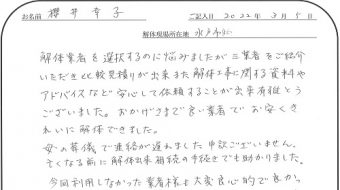 お名前 櫻井幸子 ご記入日 2022年3月5日
解体現場所在地 水戸市
解体業者を選択するのに悩みましたが三業者をご紹介
いただき比較見積りが出来また解体工事に関する資料や
アドバイスなど安心して依頼することが出来有難とう
ございました。おかげさまで良い業者でお安くき
れいに解体できました。
母の葬儀で連絡が遅れました申訳ございません。
亡くなる前に解体出来相続の手続きでも助かりました。
今回利用しなかった業者様も大変良心的で良か